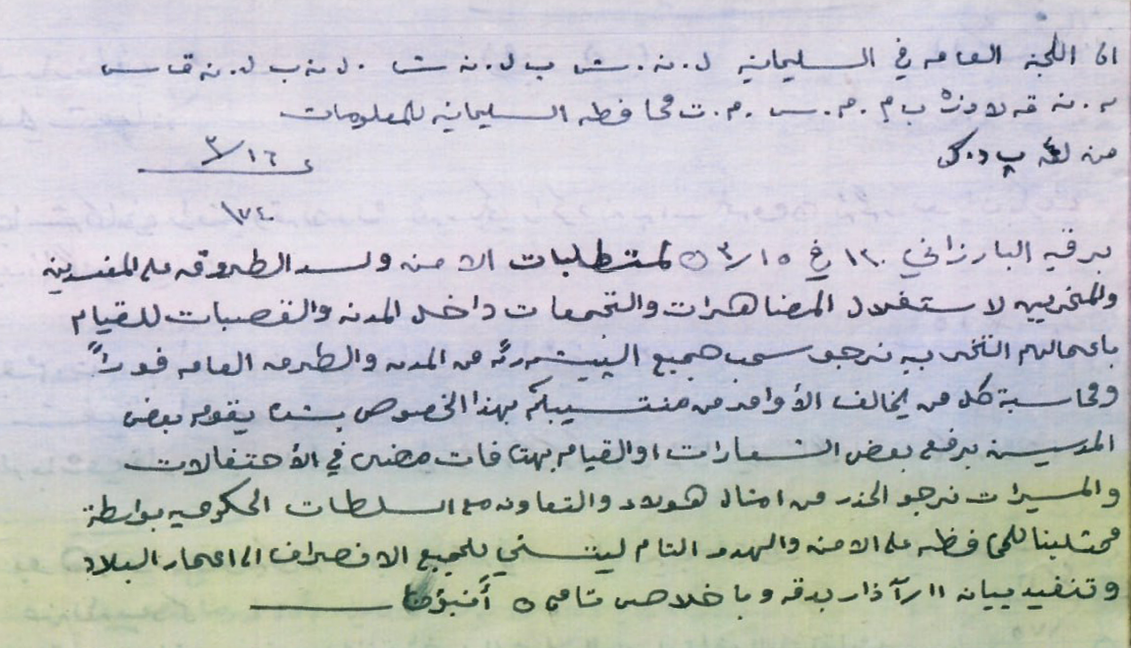 الى اللجنه العامه في السليمانيه ل.نه.ش ب ل.نه ت .ل نه ب ل.نه ق س
م.نه قه لادزه ب م.م.س.م.ت محافظه السليمانيه للمعلومات
من لق پ د.ك
٣/١٦
٧٤٠
برقيه البارزاني ١٢٠ في ٣/١٥ ٥ لمتطلبات الامن ولسد الطروق على المفسدين
والمخربين لاستغلال المضاهرات والتجمعات داخل المدن والقصبات للقيام
باعمالهم التخربيه نرجو سحب جميع الپيشمرگه من المدن والطرق العامه فوراً
ومحاسبة كل من يخالف الأوامر من منتسبيكم بهذا الخصوص بشده يقوم بعض
المدسين برفع بعض الشعارات او القيام بهتافات مضره في الأحتفالات
والمسيرات نرجو الحذر من امثال هولاء والتعاون مع السلطات الحكوميه بواسطة
ممثلينا للمحافظه على الامن والهدوء التام ليتسنى للجميع الانصراف الى اعمار البلاد
وتنفيذ بيان ١١ آذار بدقه وباخلاص تامين ٥ أنبؤنا